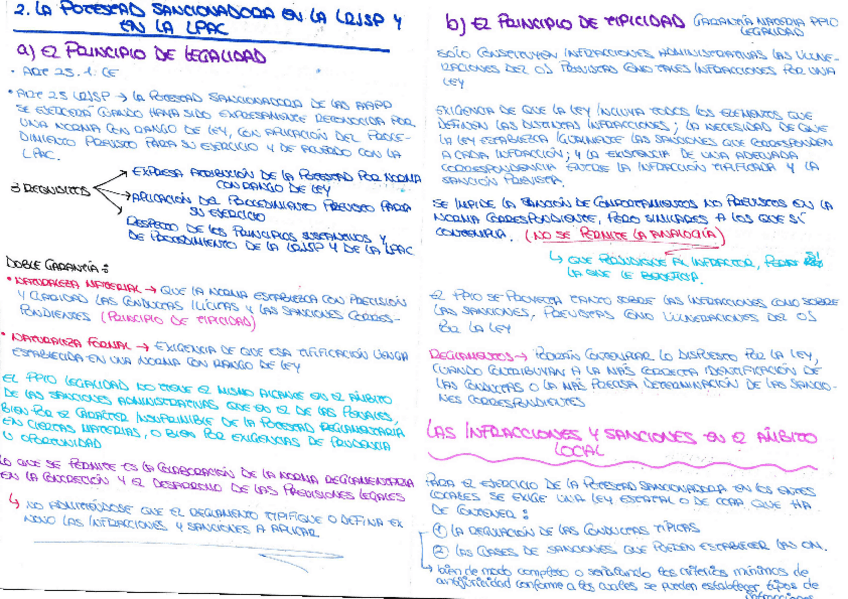 2. LA POTESTAD SANCIONADORA EN LA LRJSP Y
EN LA LPAC
a) EL PRINCIPIO DE LEGALIDAD
· ART 25.1. CE
· ART 25 LRJSP → LA POTESTAD SANCIONADORA DE LAS AAPP
SE EJERCERÁ CUANDO HAYA SIDO EXPRESAMENTE RECONOCIDA POR
UNA NORMA CON RANGO DE LEY, CON APLICACIÓN DEL PROCE-
DIMIENTO PREVISTO PARA SU EJERCICIO Y DE ACUERDO CON LA
LPAC.
3 REQUISITOS
→ EXPRESA ATRIBUCIÓN DE LA POTESTAD POR NORMA
CON RANGO DE LEY
→ APLICACIÓN DEL PROCEDIMIENTO PREVISTO PARA
SU EJERCICIO
RESPETO DE LOS PRINCIPIOS SUSTANTIVOS Y
DE PROCEDIMIENTO DE LA LRJSP Y DE LA LPAC
DOBLE GARANTÍA:
· NATURALEZA MATERIAL → QUE LA NORMA ESTABLEZCA CON PRECISIÓN
Y CLARIDAD LAS CONDUCTAS ILÍCITAS Y LAS SANCIONES CORRES-
PONDIENTES (PRINCIPIO DE TIPICIDAD)
· NATURALEZA FORMAL → EXIGENCIA DE QUE ESA TIPIFICACIÓN VENGA
ESTABLECIDA EN UNA NORMA CON RANGO DE LEY
EL PPIO LEGALIDAD NO TIENE EL MISMO ALCANCE EN EL ÁMBITO
DE LAS SANCIONES ADMINISTRATIVAS QUE EN EL DE LAS PENALES,
BIEN POR EL CARÁCTER INSUPRIMIBLE DE LA POTESTAD REGLAMENTARIA
EN CIERTAS MATERIAS, O BIEN POR EXIGENCIAS DE PRUDENCIA
U OPORTUNIDAD
LO QUE SE PERMITE ES LA COLABORACIÓN DE LA NORMA REGLAMENTARIA
EN LA CONCRECIÓN Y EL DESARROLLO DE LAS PREVISIONES LEGALES
↳ NO ADMITIÉNDOSE QUE EL REGLAMENTO TIPIFIQUE O DEFINA EX
NOVO LAS INFRACCIONES Y SANCIONES A APLICAR.
b) EL PRINCIPIO DE TIPICIDAD GARANTÍA MATERIA PPIO
LEGALIDAD
SOLO CONSTITUYEN INFRACCIONES ADMINISTRATIVAS LAS VULNE-
RACIONES DEL OJ PREVISTAS COMO TALES INFRACCIONES POR UNA
LEY
EXIGENCIA DE QUE LA LEY INCLUYA TODOS LOS ELEMENTOS QUE
DEFINEN LAS DISTINTAS INFRACCIONES; LA NECESIDAD DE QUE
LA LEY ESTABLEZCA IGUALMENTE LAS SANCIONES QUE CORRESPONDEN
A CADA INFRACCIÓN; Y LA EXISTENCIA DE UNA ADECUADA
CORRESPONDENCIA ENTRE LA INFRACCIÓN TIPIFICADA Y LA
SANCIÓN PREVISTA.
SE IMPIDE LA SANCIÓN DE COMPORTAMIENTOS NO PREVISTOS EN LA
NORMA CORRESPONDIENTE, PERO SIMILARES A LOS QUE SÍ
CONTEMPLA. (NO SE PERMITE LA ANALOGÍA)
↳ QUE PERJUDIQUE AL INFRACTOR, PERO SÍ
LA QUE LE BENEFICIA.
EL PPIO SE PROYECTA TANTO SOBRE LAS INFRACCIONES COMO SOBRE
LAS SANCIONES, PREVISTAS COMO VULNERACIONES DEL OJ
POR LA LEY
REGLAMENTOS → PODRÁN CONCRETAR LO DISPUESTO POR LA LEY,
CUANDO CONTRIBUYAN A LA MÁS CORRECTA IDENTIFICACIÓN DE
LAS CONDUCTAS O LA MÁS PRECISA DETERMINACIÓN DE LAS SANCIO-
NES CORRESPONDIENTES
LAS INFRACCIONES Y SANCIONES EN EL ÁMBITO
LOCAL
PARA EL EJERCICIO DE LA POTESTAD SANCIONADORA EN LOS ENTES
LOCALES SE EXIGE UNA LEY ESTATAL O DE CCAA QUE HA
DE CONTENER:
① LA REGULACIÓN DE LAS CONDUCTAS TÍPICAS
② LAS CLASES DE SANCIONES QUE PUEDEN ESTABLECER LAS OM.
↳ bien de modo completo o señalando los criterios mínimos de
antijuricidad conforme a los cuales se pueden establecer tipos de
infracciones